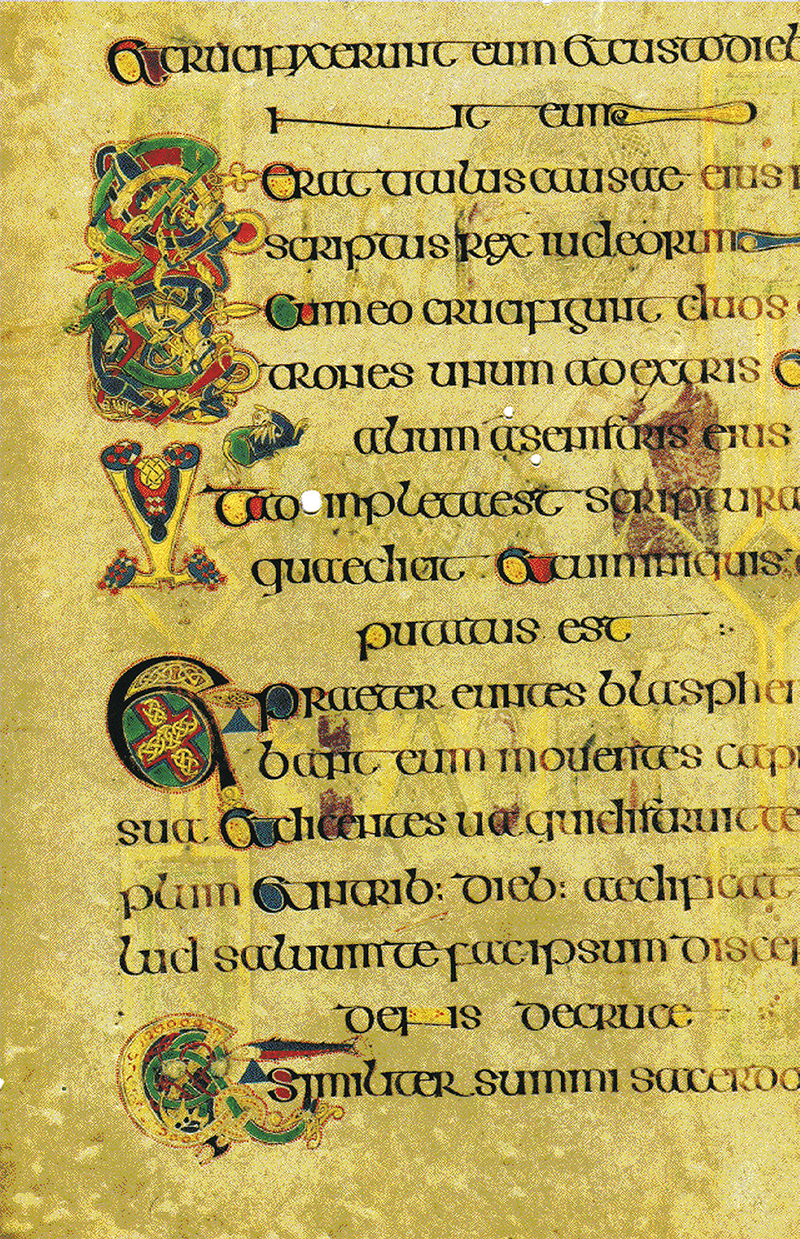 & crucifixerunt eum & custodieb
nt eum
Et erat titulus causae eius i
scriptus rex iudeorum
Et cum eo crucifigunt duos
trones unum adextris &
alium asenistris eius
Et adinpletaest scriptura
quaedicit & cuminiquis
putatus est
Et praeter euntes blasphem
bant eum mouentes capi
sua & dicentes ua quidistruit te
plum & intrib: dieb: aedificat
lud saluumte facipsum discen
dens decruce
Et similiter summi sacerdo